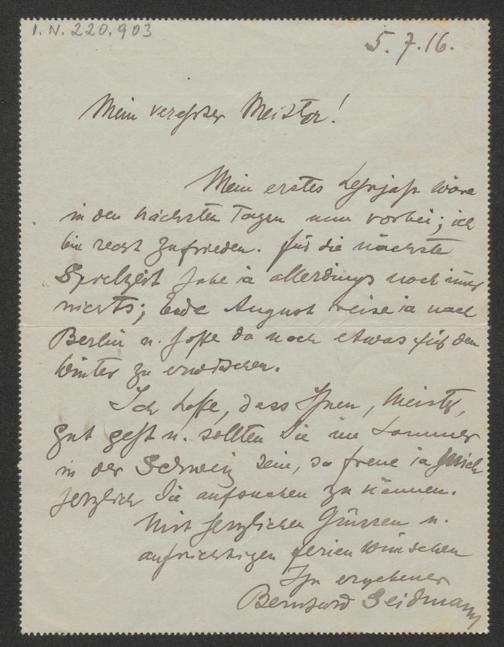 I.N. 220.903
5.7.16.
Mein verehrter Meister!
Mein erstes Lehrjahr wäre
in den nächsten Tagen nun vorbei; ich
bin recht zufrieden. Für die nächste
Spielzeit habe ich allerdings noch immer
nichts; Ende August reise ich nach
Berlin u. hoffe da noch etwas für den
Winter zu erwischen.
Ich hoffe, dass Ihnen, Meister,
gut geht u. sollten Sie im Sommer
in der Schweiz sein, so freue ich mich
herzlich Sie aufsuchen zu können.
Mit herzlichen Grüssen u.
aufrichtigen Ferienwünschen
Ihr ergebener
Bernhard Seidmann